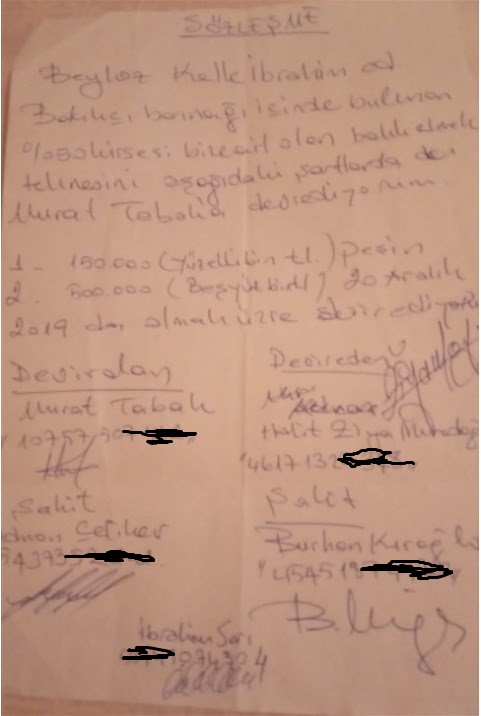 SÖZLEŞME
Beykoz Kelle İbrahim cad
Balıkçı barınağı içinde bulunan
%50 hissesi bize ait olan balık ekmek
teknesini aşağıdaki şartlarda
Murat Tabak'a devrediyorum.
1 - 150.000 (Yüzellibin tl.) peşin
2. 500.000 (Beşyüzbintl) 20 Aralık
2019 da olmak üzre devrediyorum
Deviralan
Devireden
Murat Tabak
10757
Halit Ziya
4617132
Şahit
Şahit
Çeliker
Burhan Kıroğlu
45451
İbrahim Sarı